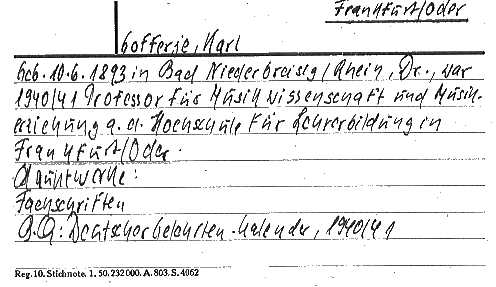 Frankfurt/Oder
Gofferje, Karl
Geb. 10.6.1893 in Bad Niederbreisig/Rhein, Dr., war
1940/41 Professor für Musikwissenschaft und Musik-
erziehung a.d. Hochschule für Lehrerbildung in
Frankfurt/Oder.
Hauptwerke:
Fachschriften
Q.A: Deutscher Gelehrten-Kalender, 1940/41
Reg. 10. Stichnote. 1. 50. 232000. A. 803. S. 4062